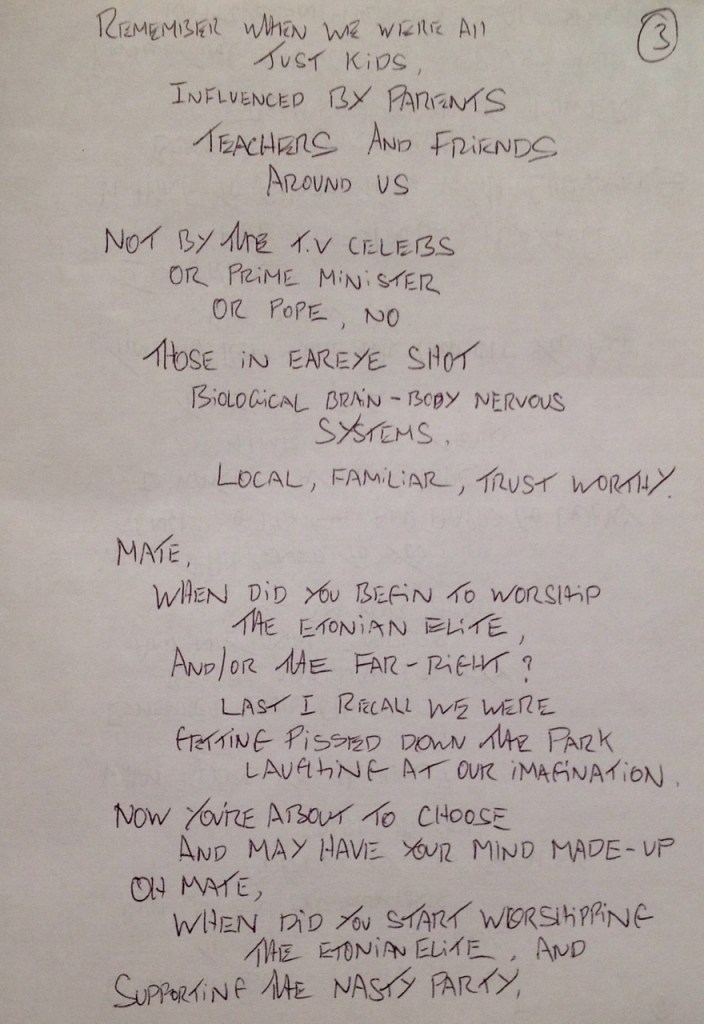 REMEMBER WHEN WE WERE All
③
JUST KIDS,
INFLUENCED BY PARENTS
TEACHERS AND FRIENDS
AROUND US
NOT BY THE T.V CELEBS
OR PRIME MINISTER
OR POPE, NO
THOSE IN EAREYE SHOT
BIOLOGICAL BRAIN-BODY NERVOUS
SYSTEMS.
LOCAL, FAMILIAR, TRUST WORTHY.
MATE,
WHEN DID YOU BEGIN TO WORSHIP
THE ETONIAN ELITE,
AND/OR THE FAR-RIGHT?
LAST I RECALL WE WERE
GETTING PISSED DOWN THE PARK
LAUGHING AT OUR IMAGINATION.
NOW YOU'RE ABOUT TO CHOOSE
AND MAY HAVE YOUR MIND MADE-UP
OH MATE,
WHEN DID YOU START WORSHIPPING
THE ETONIAN ELITE, AND
SUPPORTING THE NASTY PARTY,